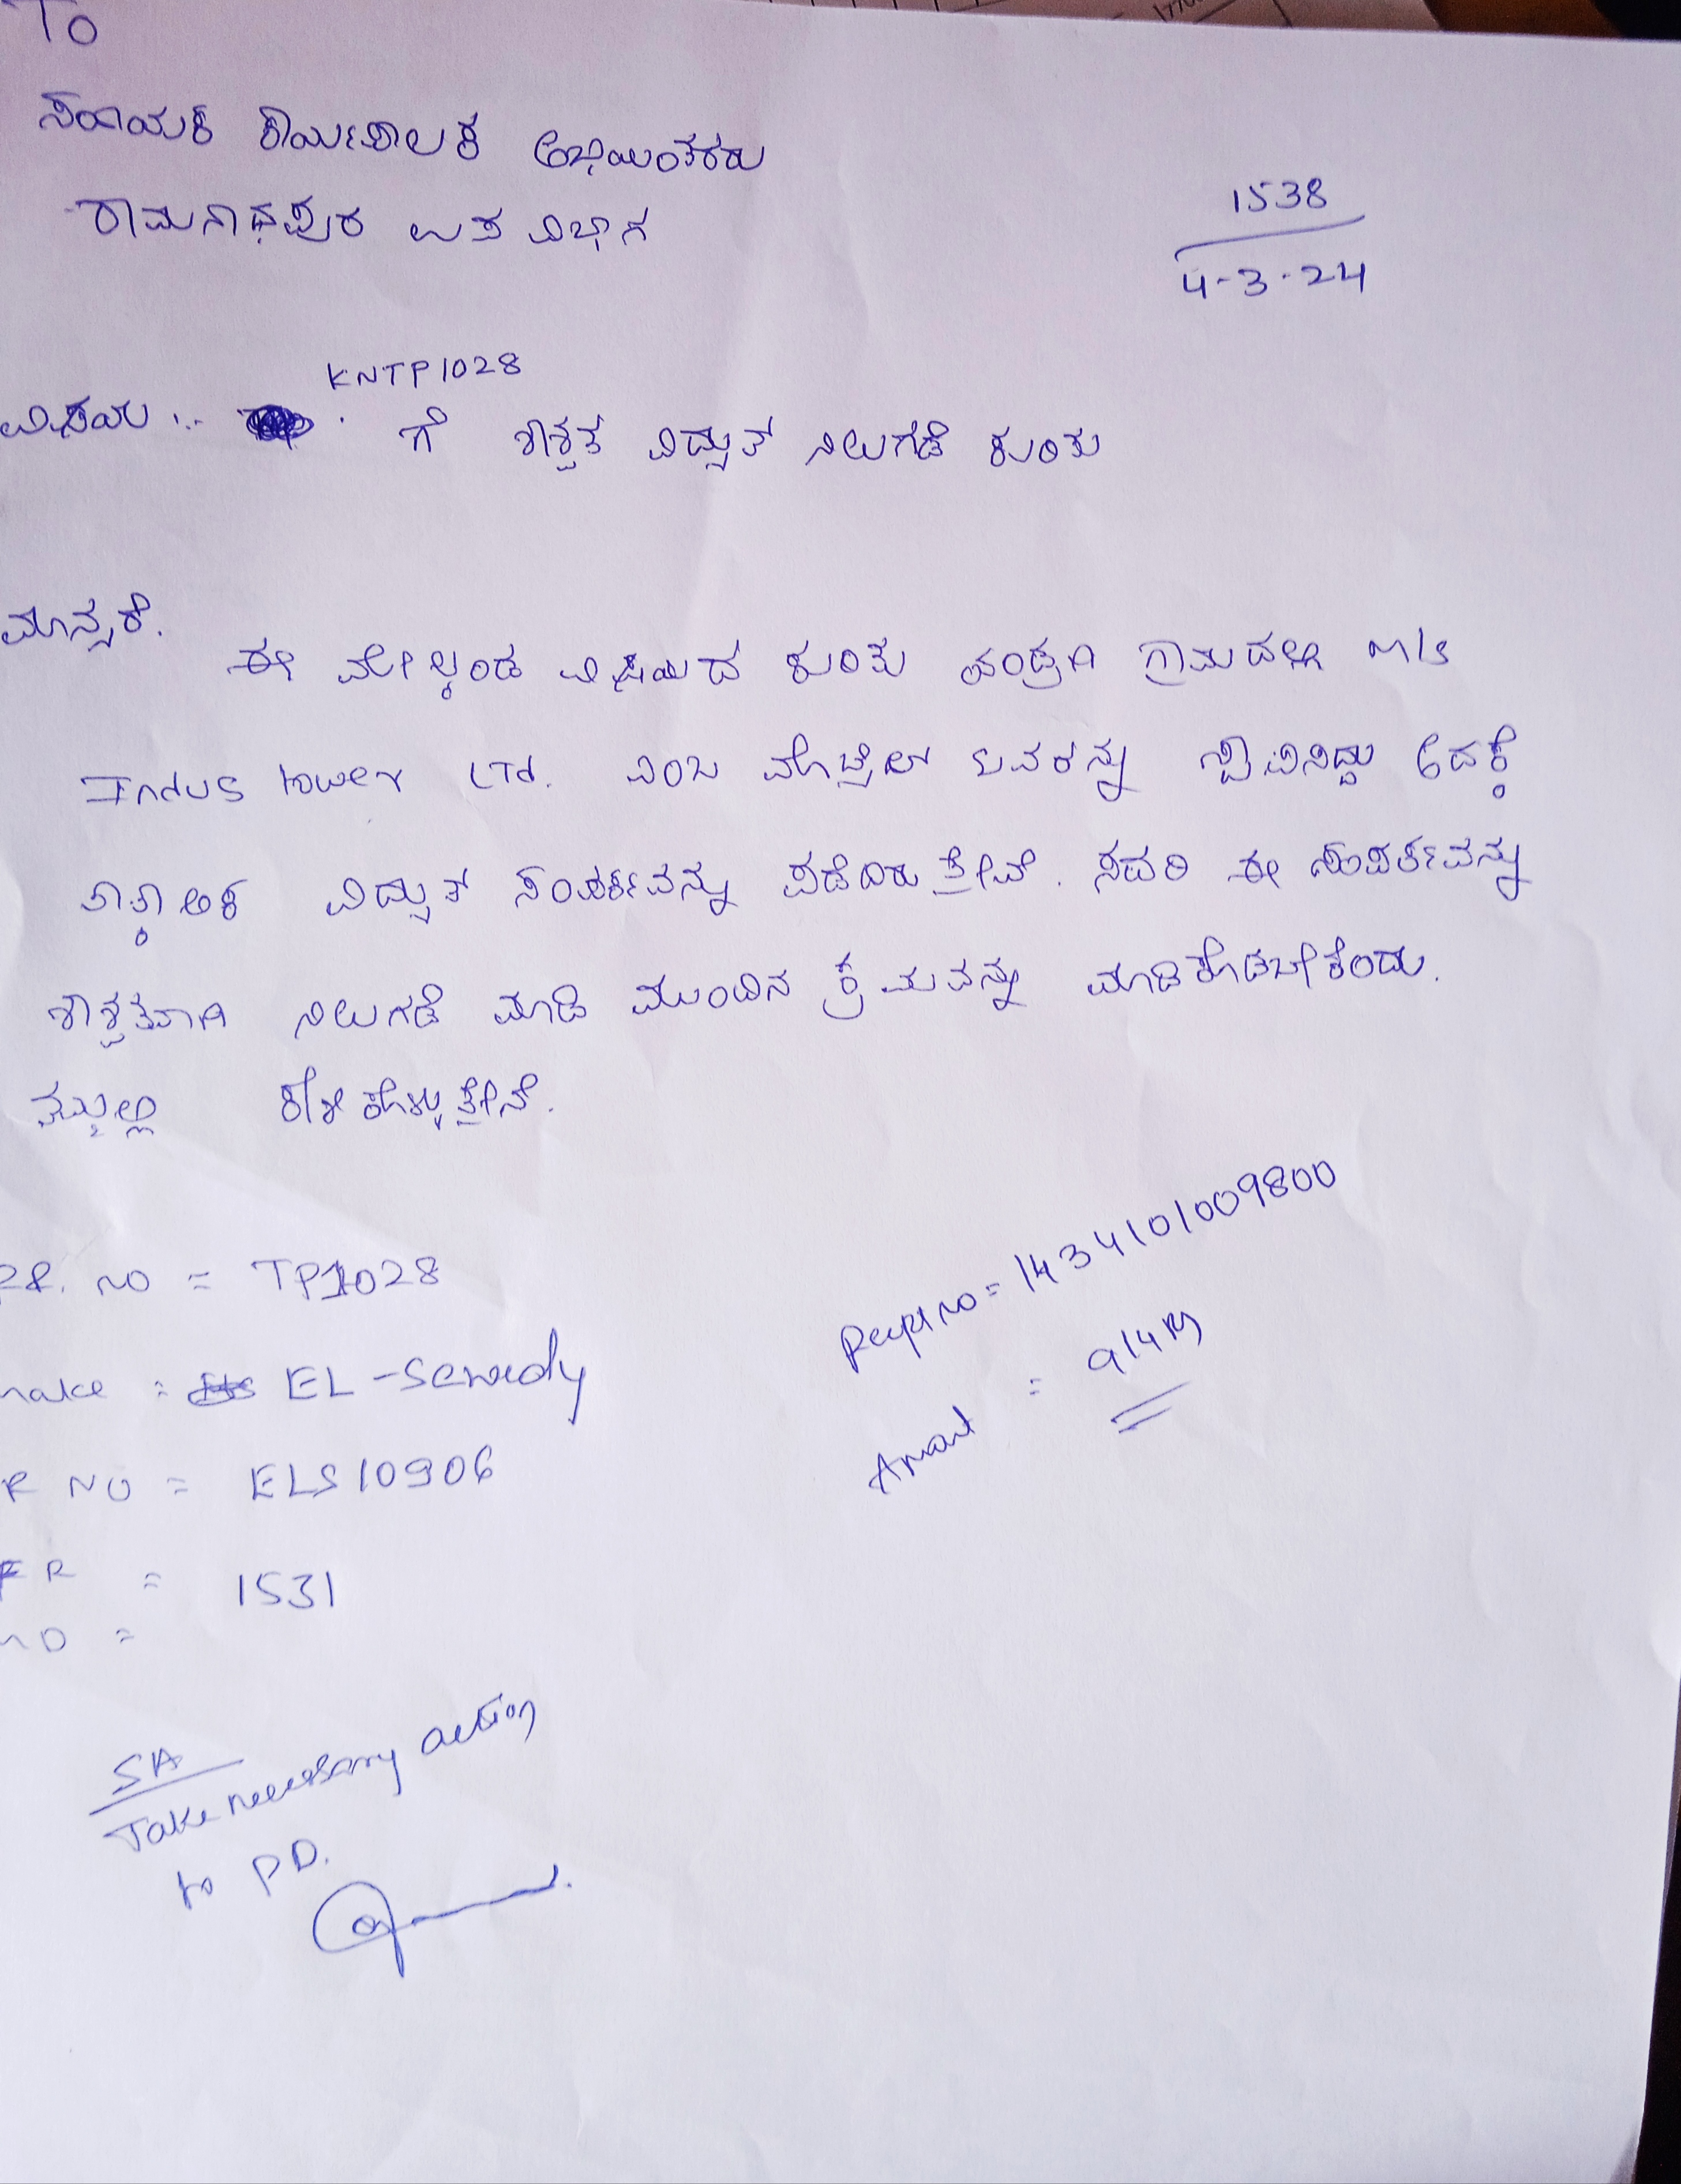 To
ಸಹಾಯಕ ಕಾರ್ಯಪಾಲಕ ಅಭಿಯಂತರರು
ರಾಮನಾಥಪುರ ಉಪ ವಿಭಾಗ
1538
4-3-24
KNTP1028
ವಿಷಯ :- ಗೆ ಶಾಶ್ವತ ವಿದ್ಯುತ್ ನಿಲುಗಡೆ ಕುರಿತು
ಮಾನ್ಯರೆ.
ಈ ಮೇಲ್ಕಂಡ ವಿಷಯದ ಕುರಿತು ಗ್ರಾಮದಲ್ಲಿ M/s
Indus tower LTd. ಎಂಬ ಮೊಬೈಲ್ ಟವರನ್ನು ಸ್ಥಾಪಿಸಿದ್ದು ಇದಕ್ಕೆ
ತಾತ್ಕಾಲಿಕ ವಿದ್ಯುತ್ ಸಂಪರ್ಕವನ್ನು ಪಡೆದಿರುತ್ತೇವೆ. ಸದರಿ ಈ ಸಂಪರ್ಕವನ್ನು
ಶಾಶ್ವತವಾಗಿ ನಿಲುಗಡೆ ಮಾಡಿ ಮುಂದಿನ ಕ್ರಮವನ್ನು ಮಾಡಿಕೊಡಬೇಕೆಂದು.
ತಮ್ಮಲ್ಲಿ ಕೇಳಿಕೊಳ್ಳುತ್ತೇನೆ.
R.R. NO = TP1028
make = EL-Sewedy
R NO = ELS10906
FR = 1531
MD =
Recpt no = 1434101009800
Amount = 914 Rs
SA
Take necessary action
to PD.